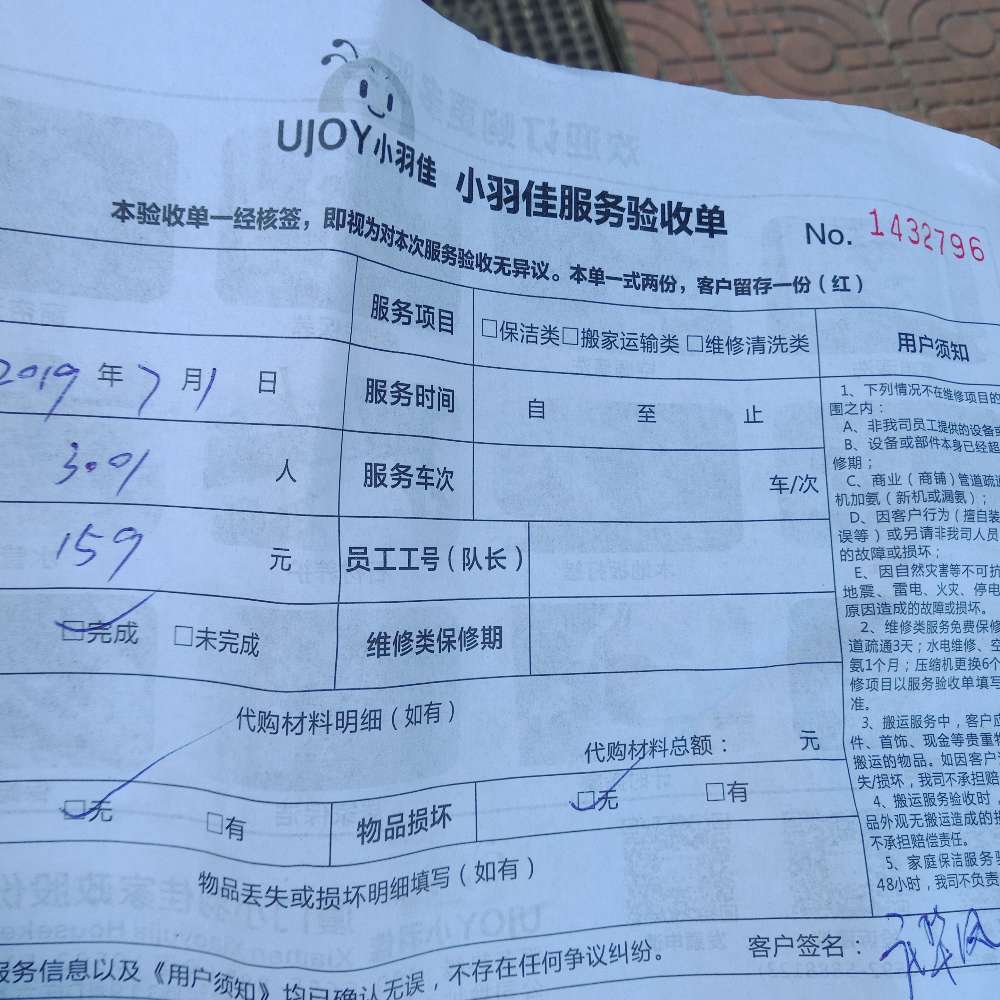 UJOY小羽佳 小羽佳服务验收单 No. 1432796
本验收单一经核签，即视为对本次服务验收无异议。本单一式两份，客户留存一份（红）
服务项目 □保洁类□搬家运输类 □维修清洗类
2019年7月1日 服务时间 自 至 止
人 服务车次 车/次
159 元 员工工号（队长）
□完成 □未完成 维修类保修期
代购材料明细（如有）
代购材料总额： 元
□无 □有 物品损坏 □无 □有
物品丢失或损坏明细填写（如有）
服务信息以及《用户须知》均已确认无误，不存在任何争议纠纷。 客户签名：
用户须知
1、下列情况不在维修项目的
围之内：
A、非我司员工提供的设备或
B、设备或部件本身已经超
修期；
C、商业（商铺）管道疏通
机加氨（新机或漏氨）；
D、因客户行为（擅自装
误等）或另请非我司人员
的故障或损坏；
E、因自然灾害等不可抗
地震、雷电、火灾、停电
原因造成的故障或损坏。
2、维修类服务免费保修
道疏通3天；水电维修、空
氨1个月；压缩机更换6个
修项目以服务验收单填写
准。
3、搬运服务中，客户应
件、首饰、现金等贵重物
搬运的物品。如因客户
失/损坏，我司不承担赔
4、搬运服务验收时，
品外观无搬运造成的损
不承担赔偿责任。
5、家庭保洁服务验
48小时，我司不负责